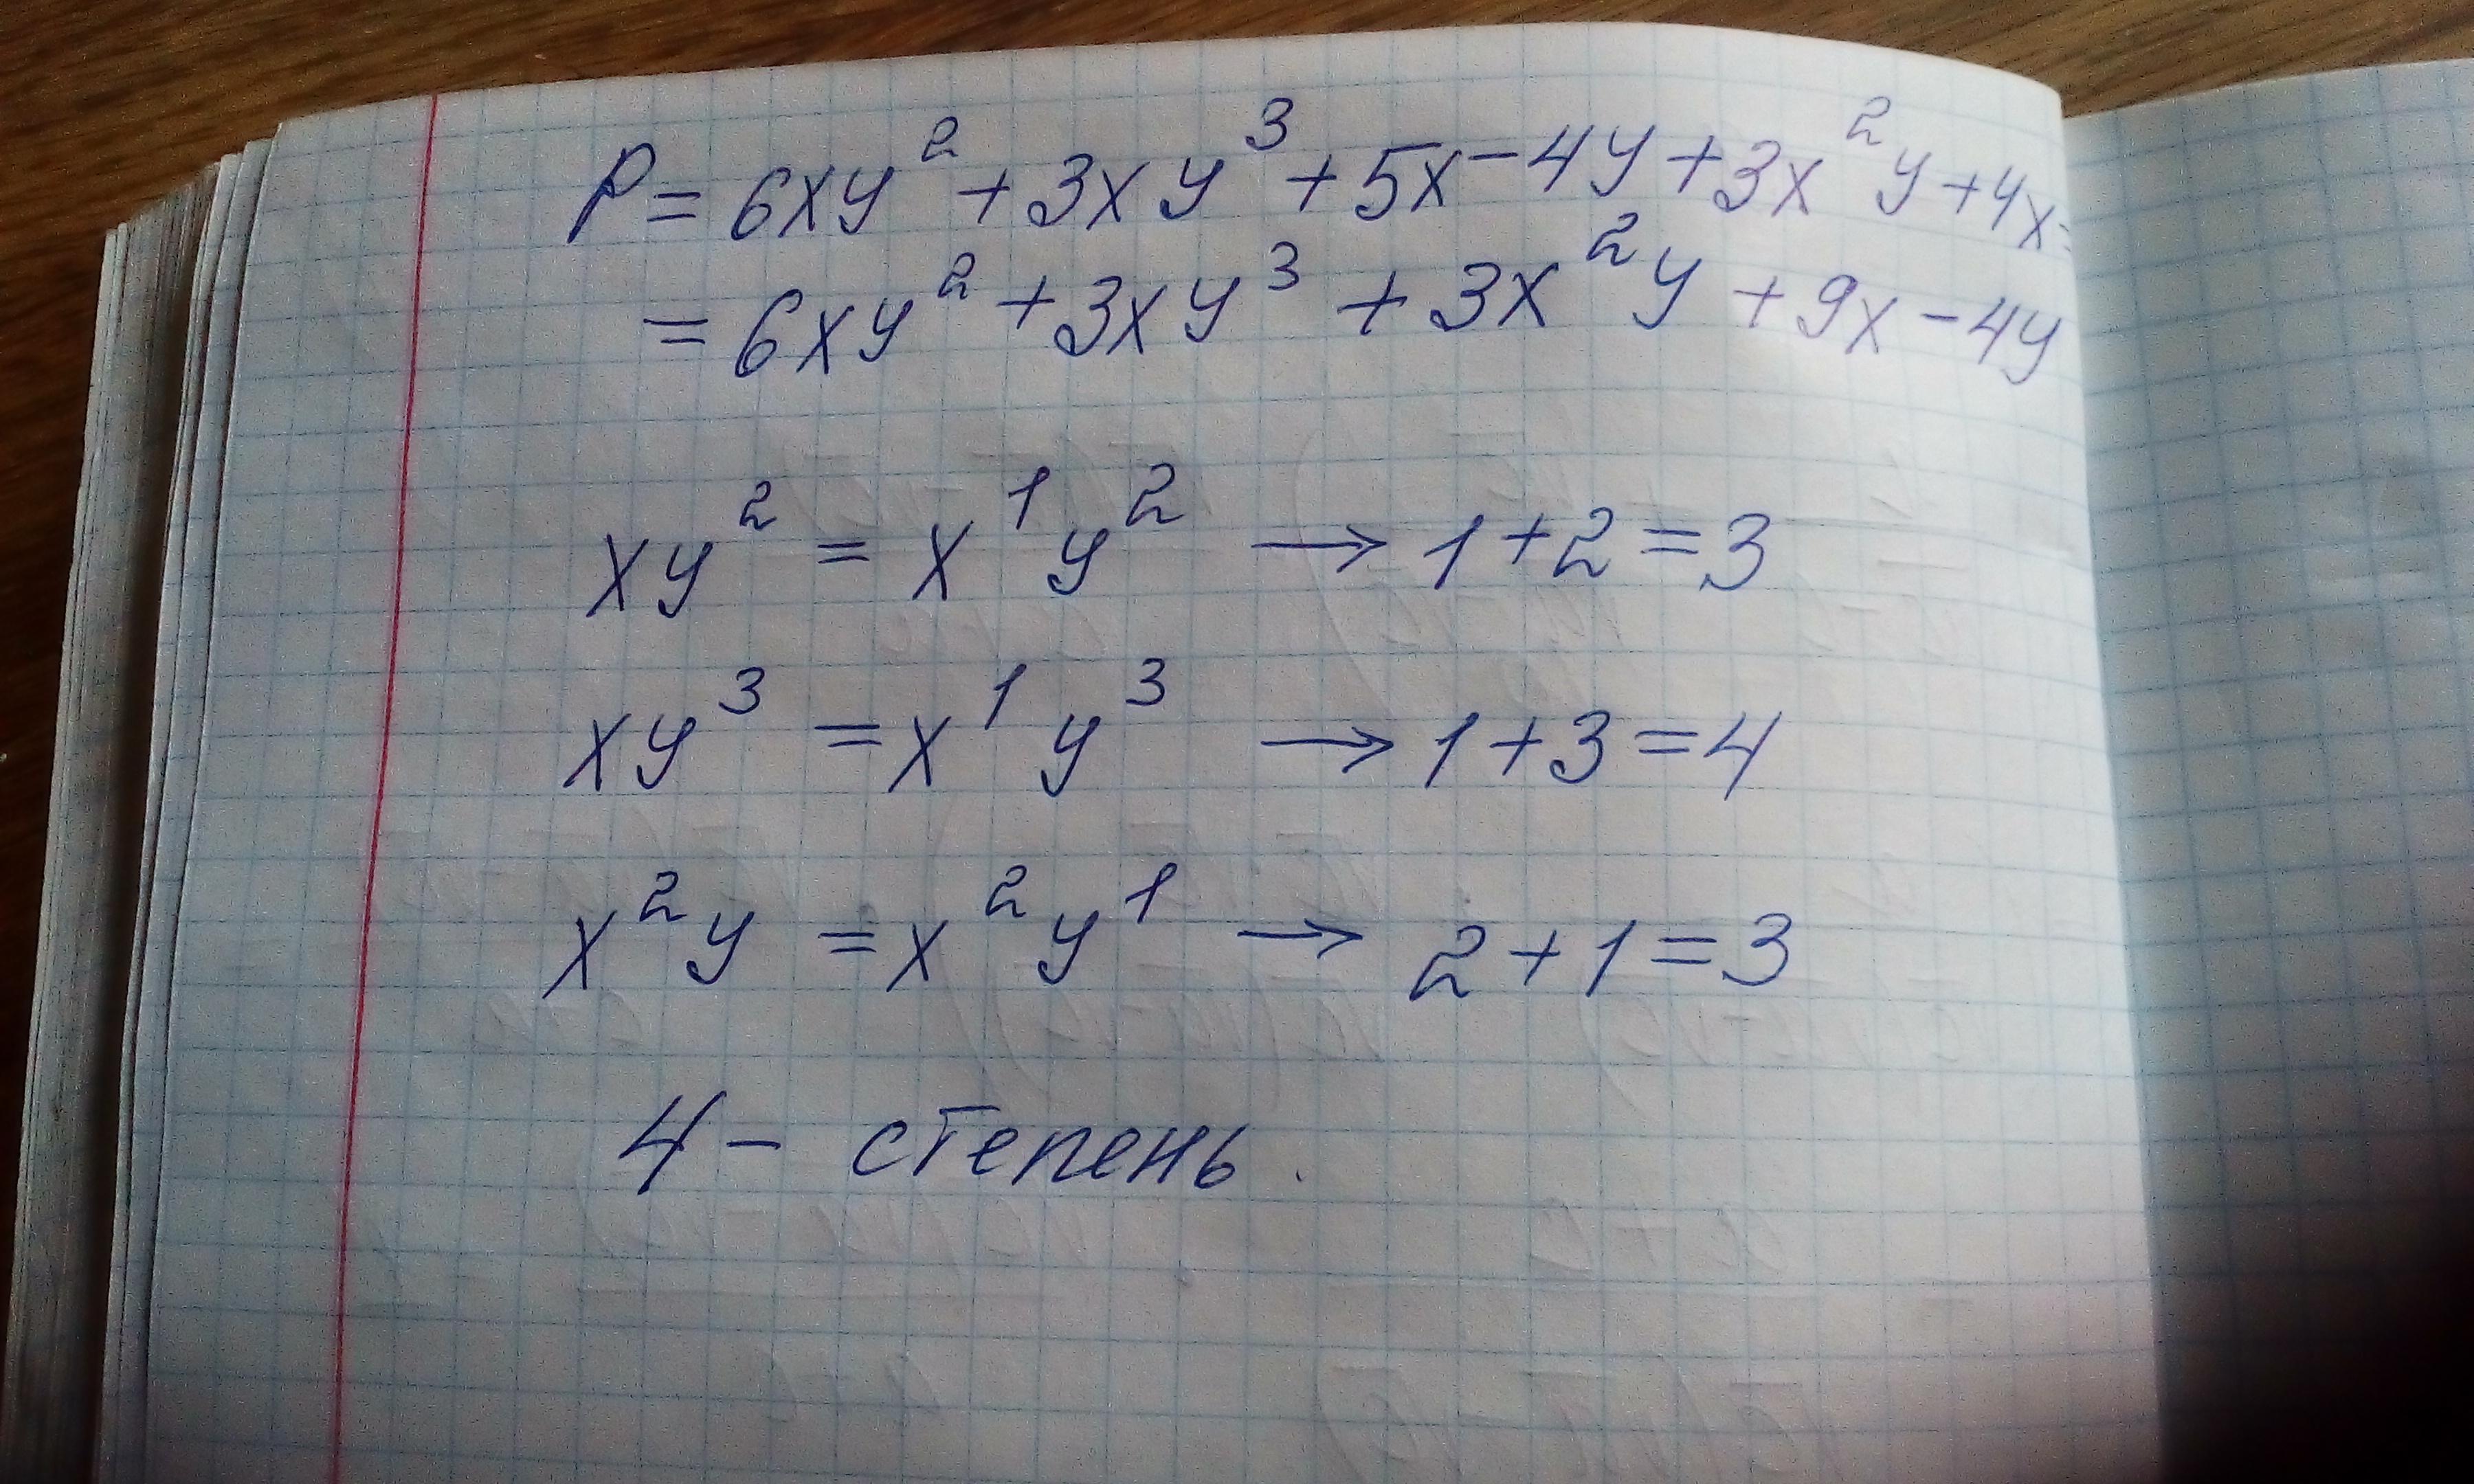 P = 6xy² + 3xy³ + 5x - 4y + 3x²y + 4x =
= 6xy² + 3xy³ + 3x²y + 9x - 4y
xy² = x¹y² → 1 + 2 = 3
xy³ = x¹y³ → 1 + 3 = 4
x²y = x²y¹ → 2 + 1 = 3
4 - степень.